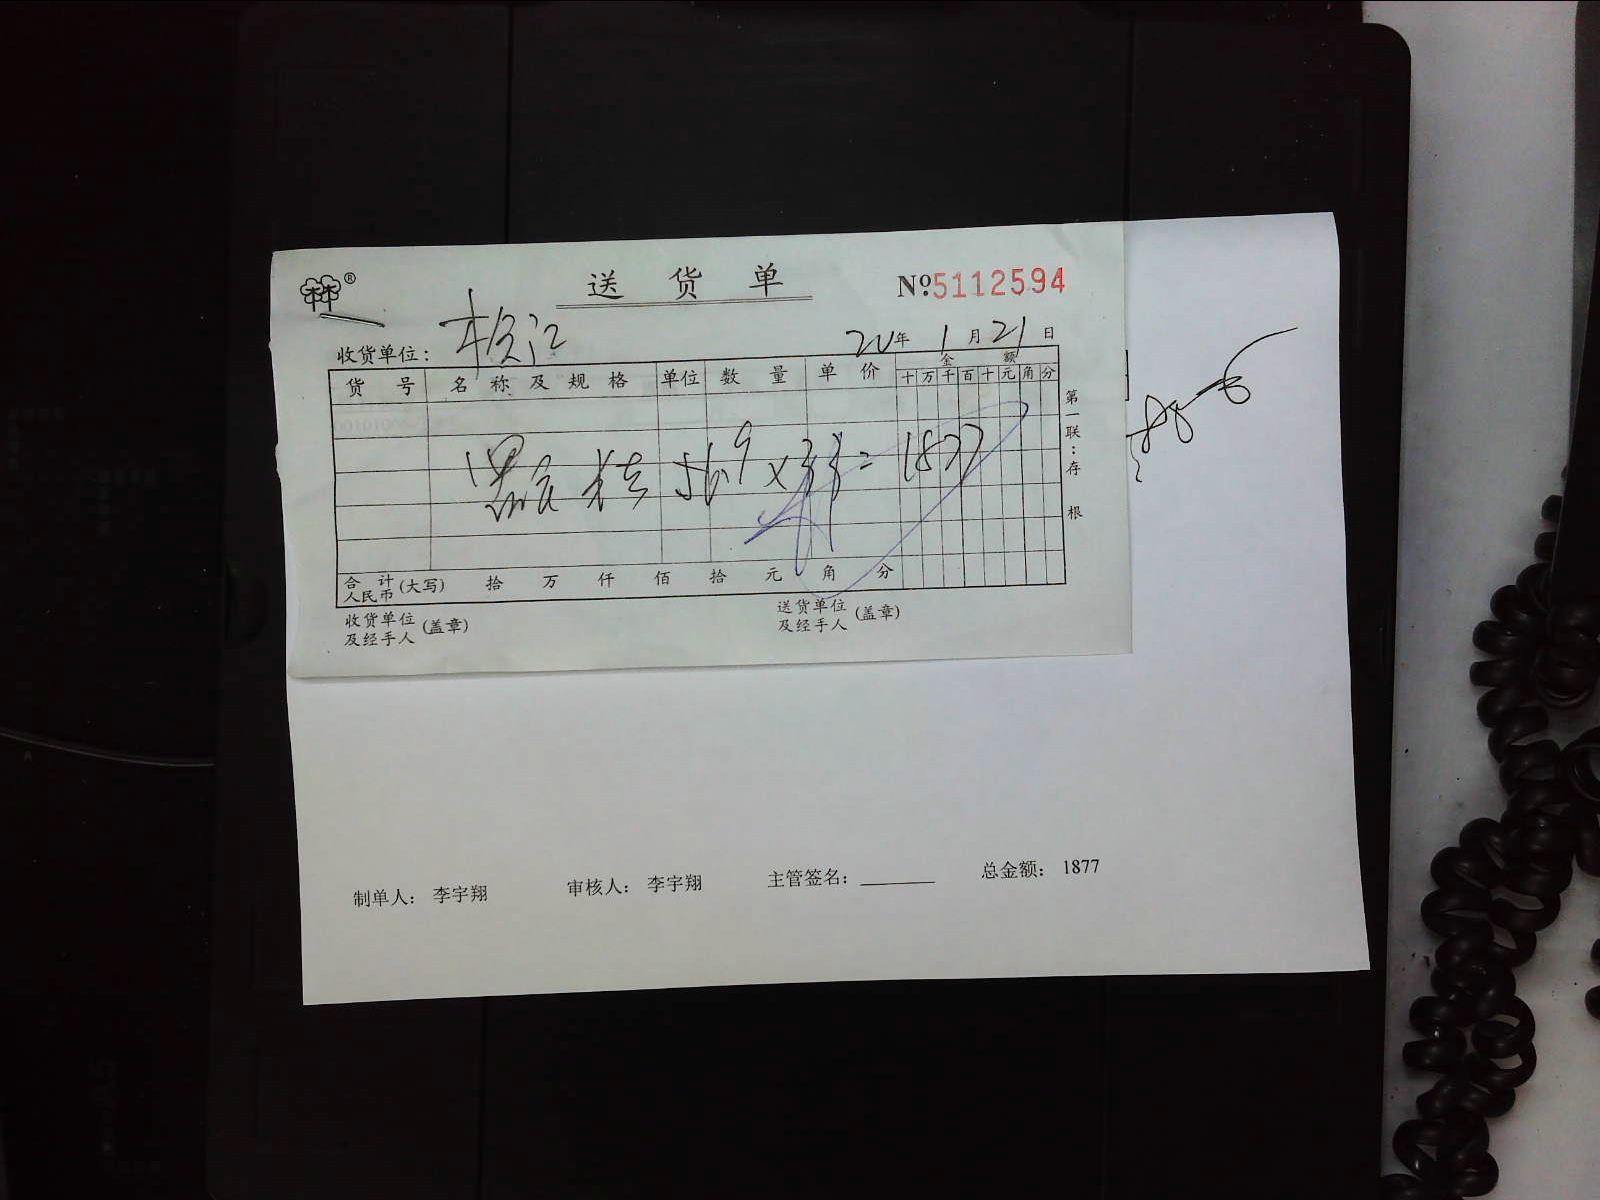 林®
送 货 单
No:5112594
收货单位:
20年 1月21日
货 号 名 称 及 规 格 单位 数 量 单 价 金 额
十万千百十元角分
= 1877
第一联:存 根
合 计 人民币 (大写) 拾 万 仟 佰 拾 元 角 分
收货单位 及经手人 (盖章) 送货单位 及经手人 (盖章)
制单人: 李宇翔 审核人: 李宇翔 主管签名: 总金额: 1877